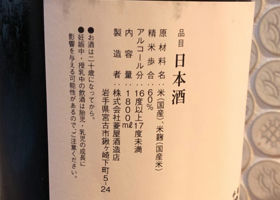 品目 日本酒
原材料名:米(国産)、米麹(国産米)
精米歩合:60%
アルコール分:16度以上17度未満
内容量:1800ml
製造者:株式会社菱屋酒造店
岩手県宮古市鍬ヶ崎下町5-24
●お酒は二十歳になってから。
●妊娠中・授乳中の飲酒は胎児・乳児の成長に
影響を与える可能性がありますのでご注意ください。